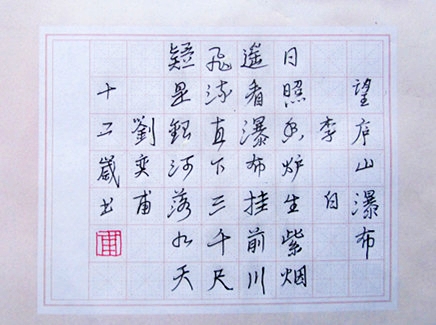 望庐山瀑布
李白
日照香炉生紫烟
遥看瀑布挂前川
飞流直下三千尺
疑是银河落九天
劉奕甫
十二歲书
甫